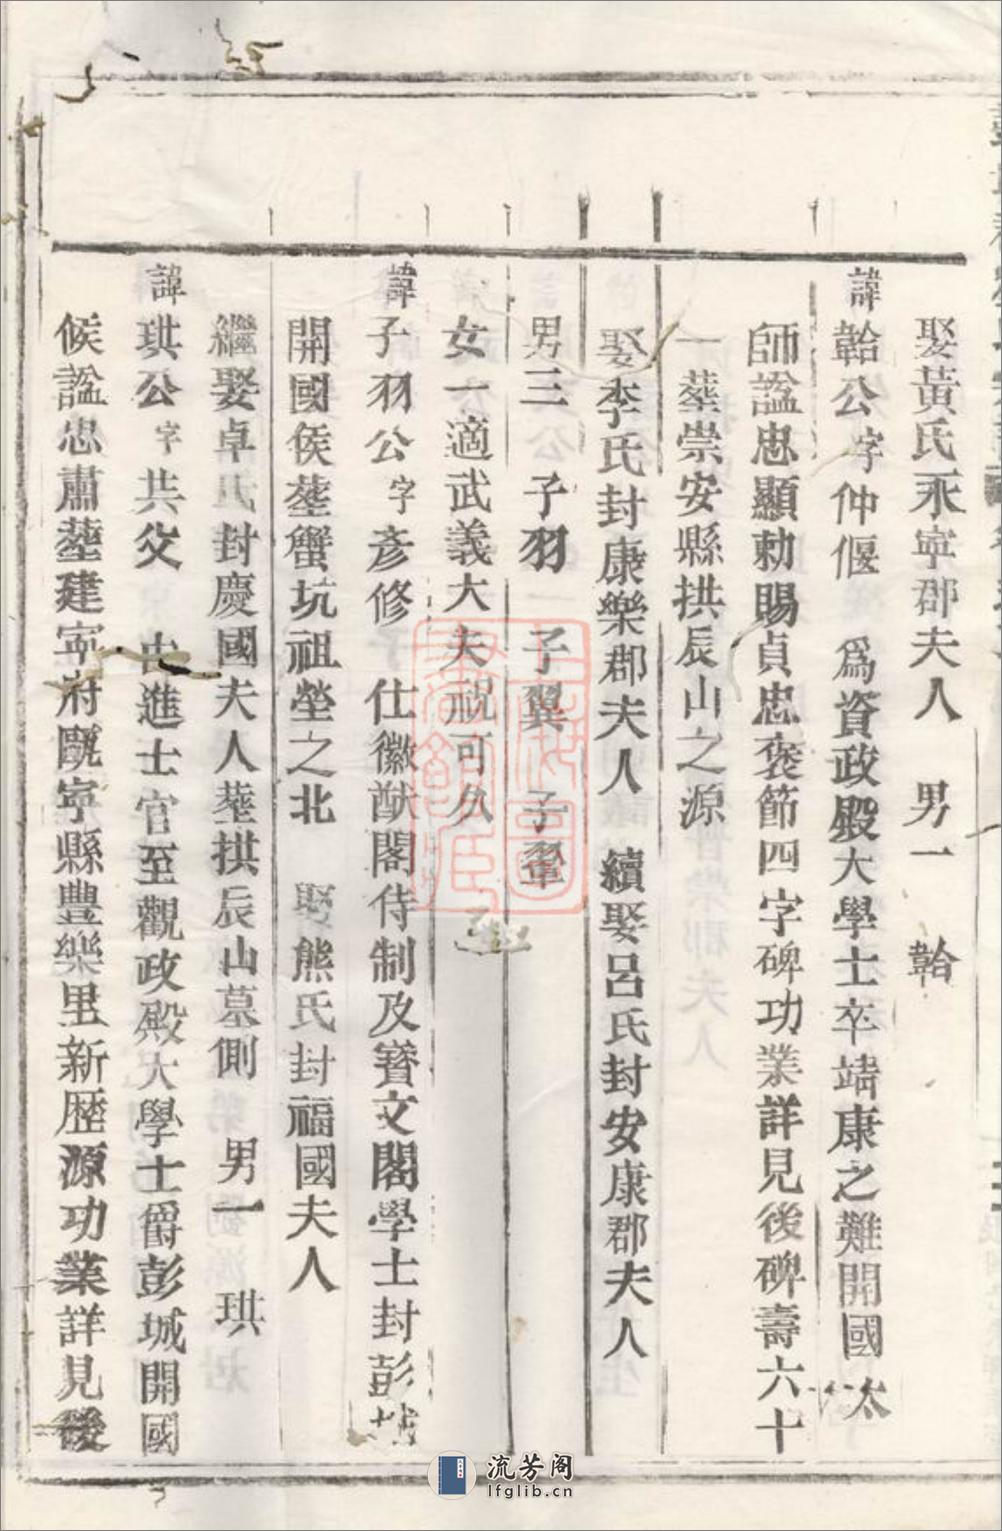 娶黃氏永寧郡夫人　男一　韐
諱韐公字仲偃　爲資政殿大學士卒靖康之難開國太
師諡忠顯勅賜貞忠褒節四字碑功業詳見後碑壽六十
一葬崇安縣拱辰山之源
娶李氏封康樂郡夫人　續娶呂氏封安康郡夫人
男三　子羽　子翼　子翬
女一適武義大夫祝可久
諱子羽公字彥修　仕徽猷閣侍制及寶文閣學士封彭城
開國侯葬蟹坑祖塋之北　娶熊氏封福國夫人
繼娶卓氏封慶國夫人葬拱辰山墓側　男一　珙
諱珙公字共父　由進士官至觀政殿大學士爵彭城開國
候諡忠肅葬建寧府甌寧縣豐樂里新歷源功業詳見後
流芳阁
lfglib.cn